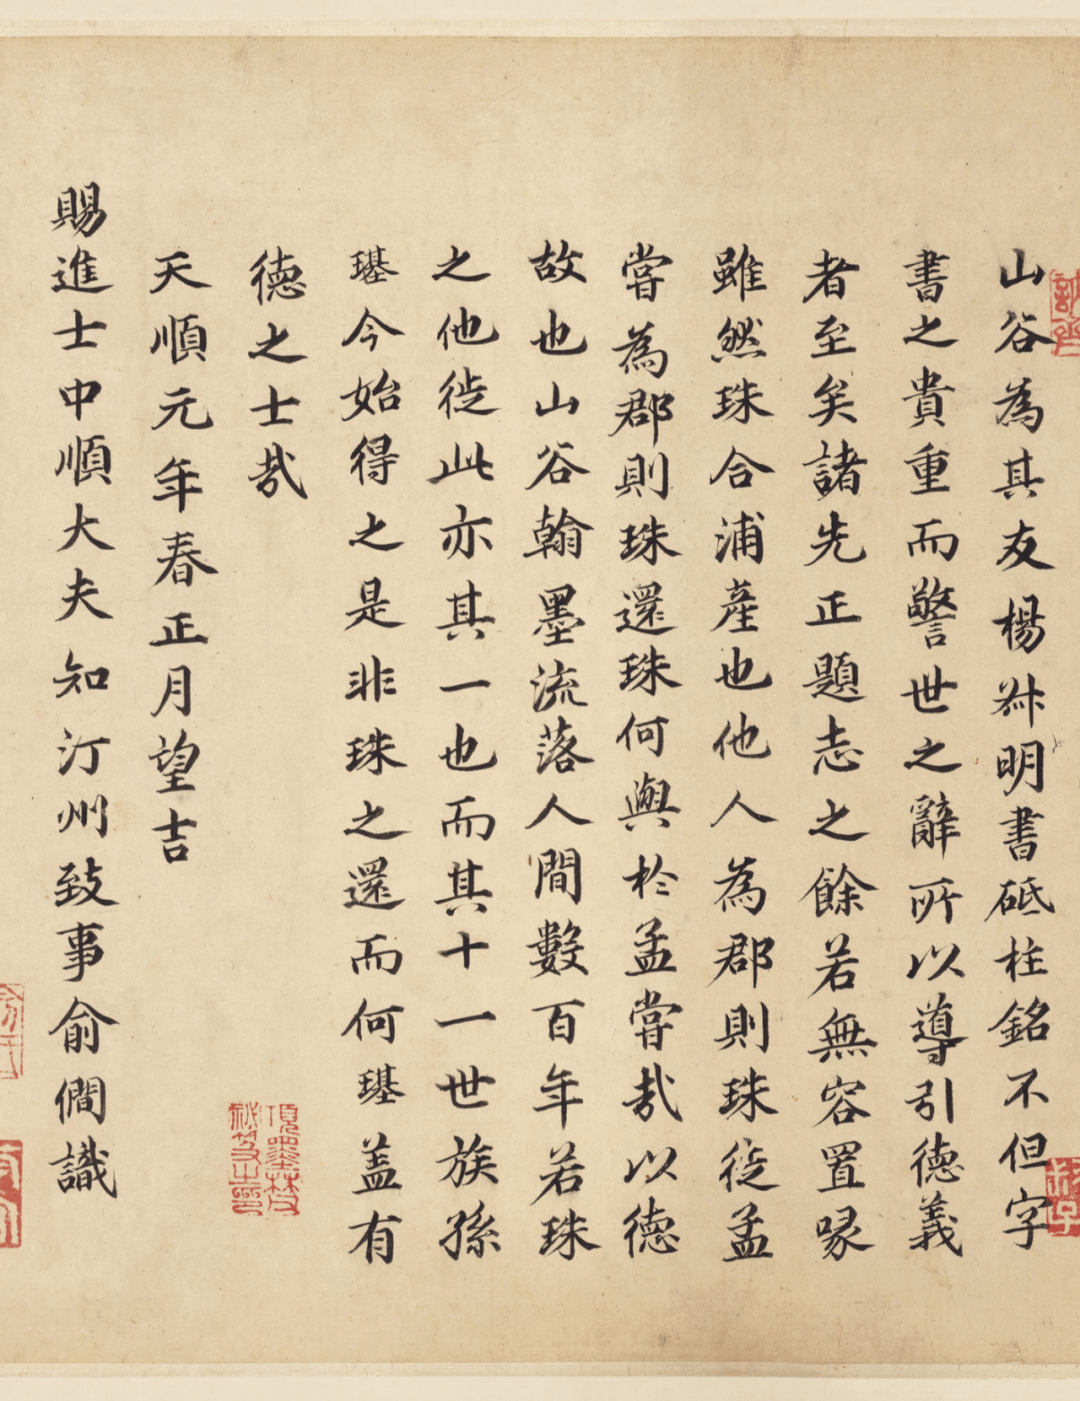 山谷為其友楊叔明書砥柱銘不但字
書之貴重而警世之辭所以導引德義
者至矣諸先正題志之餘若無容置喙
雖然珠合浦產也他人為郡則珠徙孟
嘗為郡則珠還珠何與於孟嘗哉以德
故也山谷翰墨流落人間數百年若珠
之他徙此亦其一也而其十一世族孫
璂今始得之是非珠之還而何璂蓋有
德之士哉
天順元年春正月望吉
賜進士中順大夫知汀州致事俞僩識
項墨林
秘笈之印